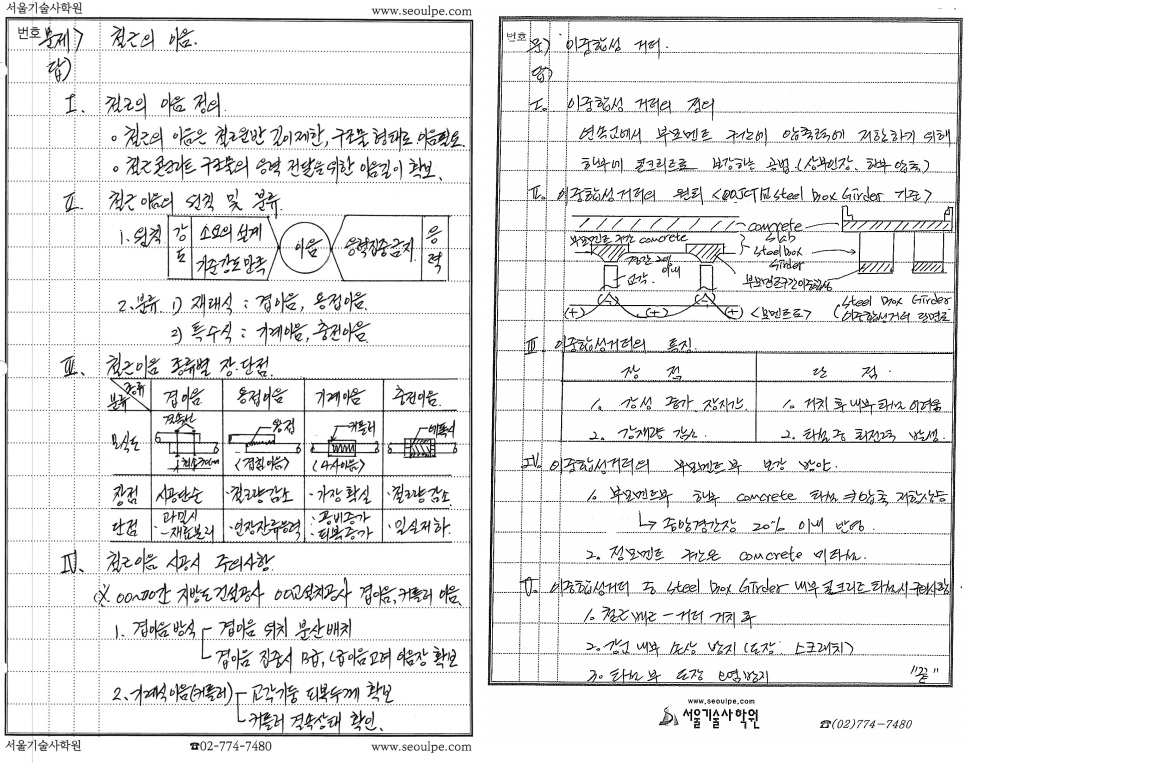 서울기술사학원 www.seoulpe.com
번호 문제) 철근의 이음.
답)
I. 철근의 이음 정의.
○ 철근의 이음은 철근운반 길이제한, 구조물 형태로 이음필요.
○ 철근콘크리트 구조물의 응력 전달을 위한 이음길이 확보.
II. 철근이음의 원칙 및 분류.
1. 원칙 강도 소요의 설계 기준강도 만족 이음 응력집중금지. 응력
2. 분류 1) 재래식 : 겹이음, 용접이음.
2) 특수식 : 기계이음, 충전이음.
III. 철근이음 종류별 장·단점.
종류 분류 겹이음 용접이음 기계이음 충전이음.
모식도 결속선 용접 커플러 에폭시
<겹침이음> <나사이음>
장점 시공단순 ·철근량감소 ·가장확실 ·철근량감소
단점 과밀시 -재료분리 ·인장잔류응력 ·공비증가 ·피복증가 ·밀실저하.
IV. 철근이음 시공시 주의사항.
※ 00~00간 지방도건설공사 00교설치공사 겹이음, 커플러 이음.
1. 겹이음방식 겹이음 위치 분산배치
겹이음 집중시 B급, A급이음고려 이음장 확보
2. 기계식이음(커플러) 교각기둥 피복두께 확보
커플러 결속상태 확인.
서울기술사학원 ☎02-774-7480 www.seoulpe.com
번호 문) 이중합성 거더.
답)
I. 이중합성 거더의 정의
연속교에서 부모멘트 구간에 압축력에 저항하기 위해
하부에 콘크리트로 보강하는 공법 (상부인장, 하부 압축)
II. 이중합성거더의 원리 <00JCT교 steel box Girder 기준>
concrete slab
부모멘트 구간 concrete steel box Girder
경간 20% 이내
교각. 부모멘트구간이중합성
(+) (-) (+) (-) (+) <모멘트도> (steel box Girder 이중합성거더 단면도)
III. 이중합성거더의 특징.
장 점 단 점.
1. 강성 증가 장지간. 1. 거치 후 내부 타설 어려움
2. 강재량 감소. 2. 타설 중 회전력 발생.
IV. 이중합성거더의 부모멘트부 보강 방안.
1. 부모멘트부 하부 concrete 타설 → 압축 저항상승
↳ 중앙경간장 20% 이내 반영.
2. 정모멘트 구간은 concrete 미타설.
V. 이중합성거더 중 steel box Girder 내부 콘크리트 타설시 주의사항
1. 철근 배근 - 거더 거치 후
2. 강교 내부 손상 방지 (도장 스크래치)
3. 타설부 도장 오염방지 "끝"
www.seoulpe.com
서울기술사학원 ☎(02)774-7480